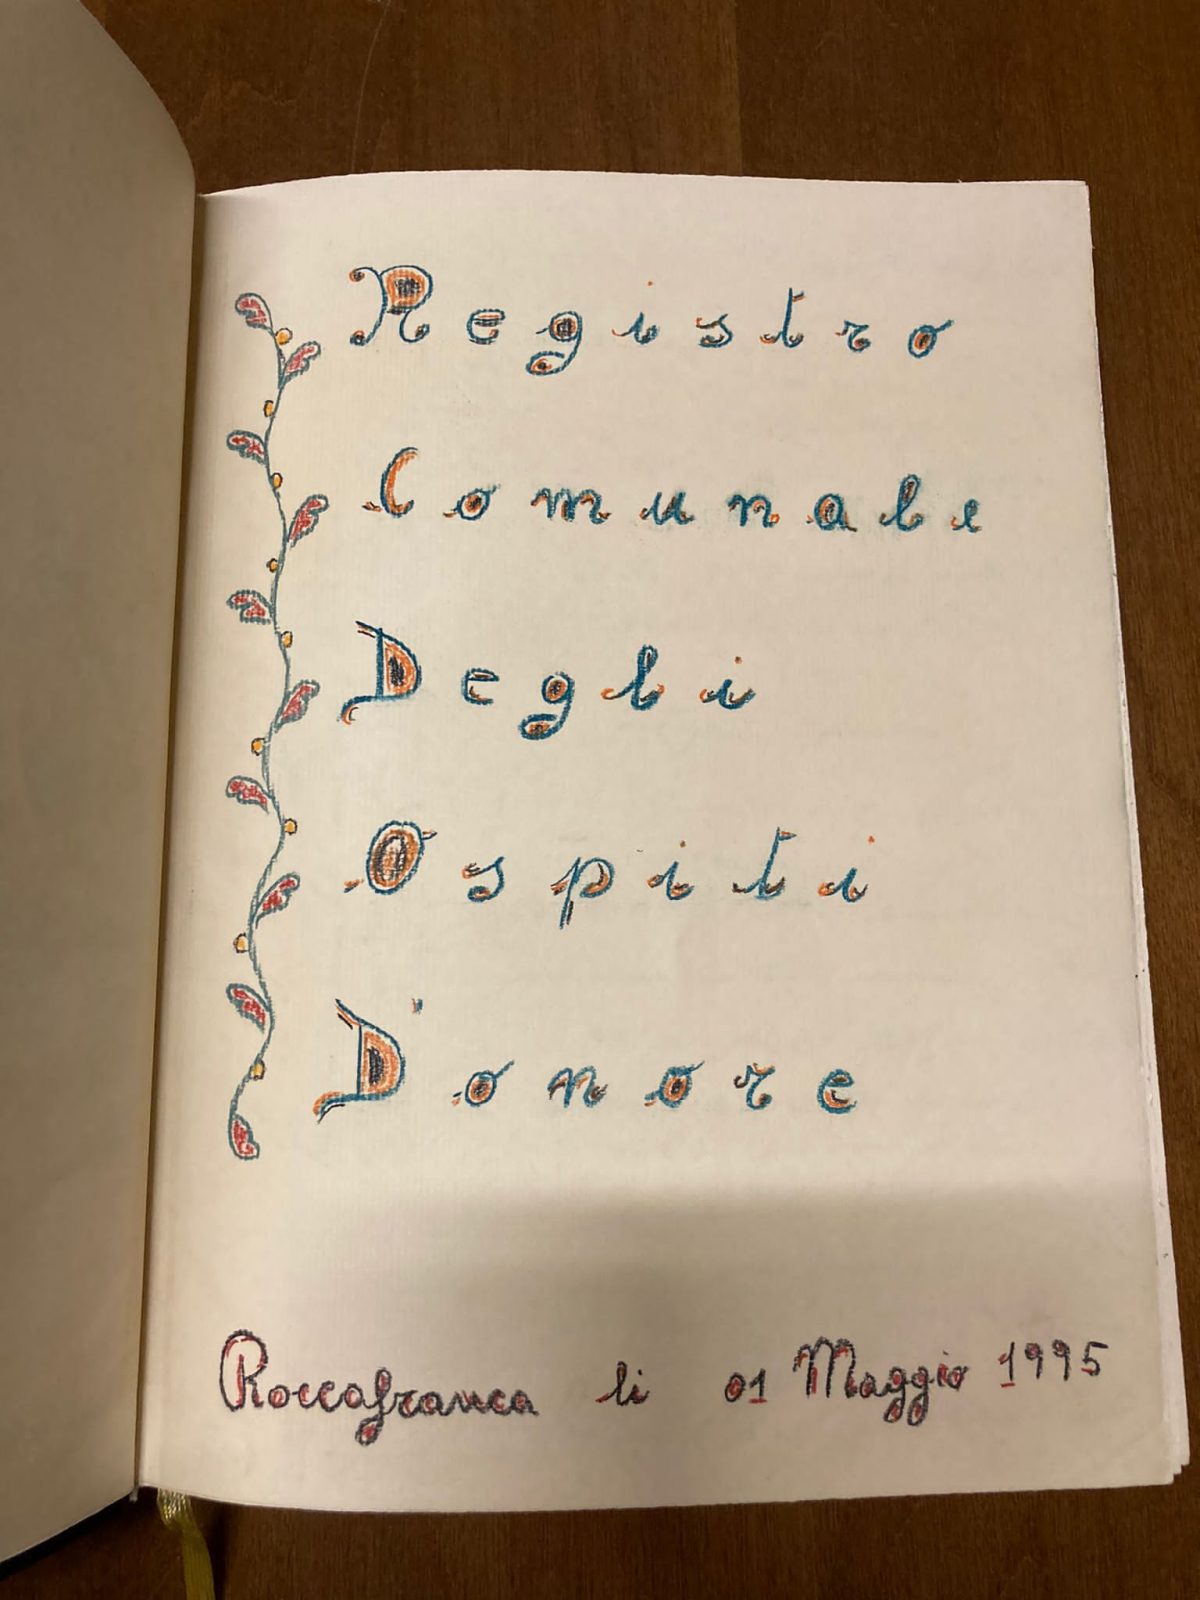 Registro
Comunale
Degli
Ospiti
D'onore
Roccafranca li 01 Maggio 1995